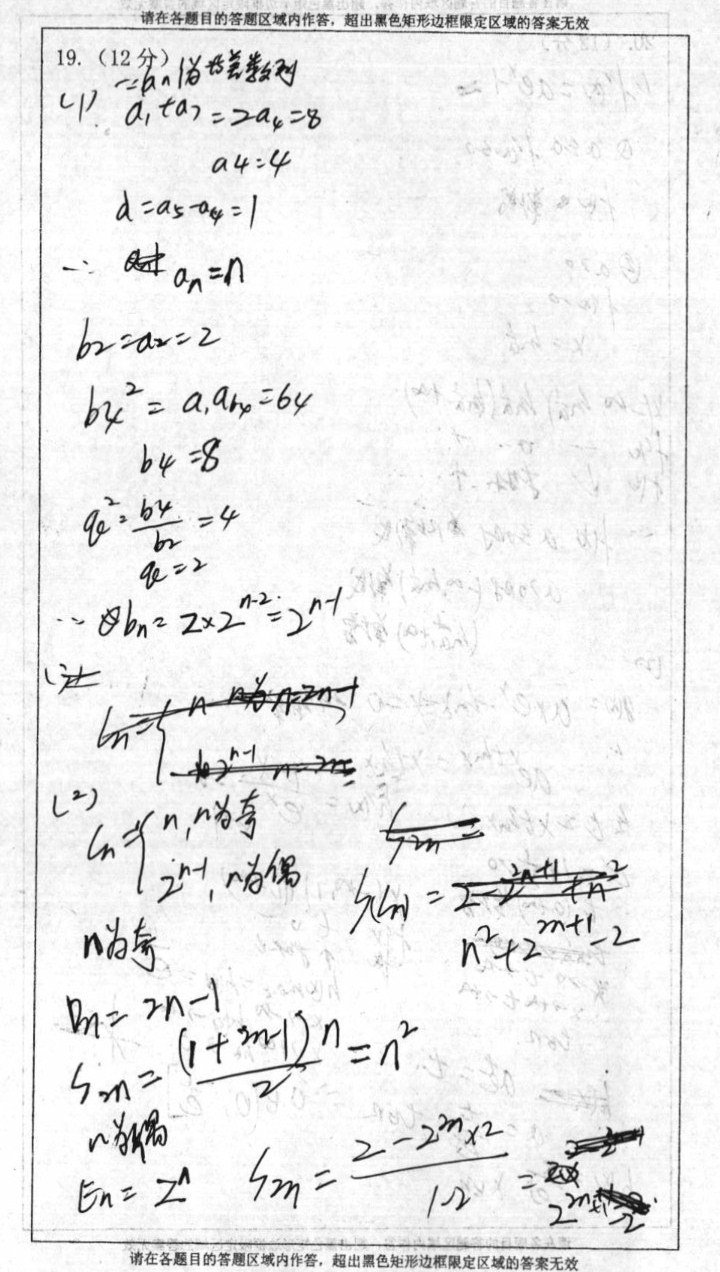 请在各题目的答题区域内作答，超出黑色矩形边框限定区域的答案无效
19.（12分）
(1) ∵{aₙ}为等差数列
a₁+a₇=2a₄=8
a4=4
d=a₅-a₄=1
∴ aₙ=n
b₂=a₂=2
b₄²=a₁a₆₄=64
b4=8
q²=b4/b₂=4
q=2
∴ bₙ=2×2ⁿ⁻²=2ⁿ⁻¹
(2)
Cₙ={n, n为奇
2ⁿ⁻¹, n为偶
n²+2²ⁿ⁺¹-2
n为奇
Bn=2n-1
S₂ₙ=(1+2n-1)n/2=n²
n为偶
En=2ⁿ
S₂ₙ=(2-2²ⁿ×2)/(1-2)=
请在各题目的答题区域内作答，超出黑色矩形边框限定区域的答案无效